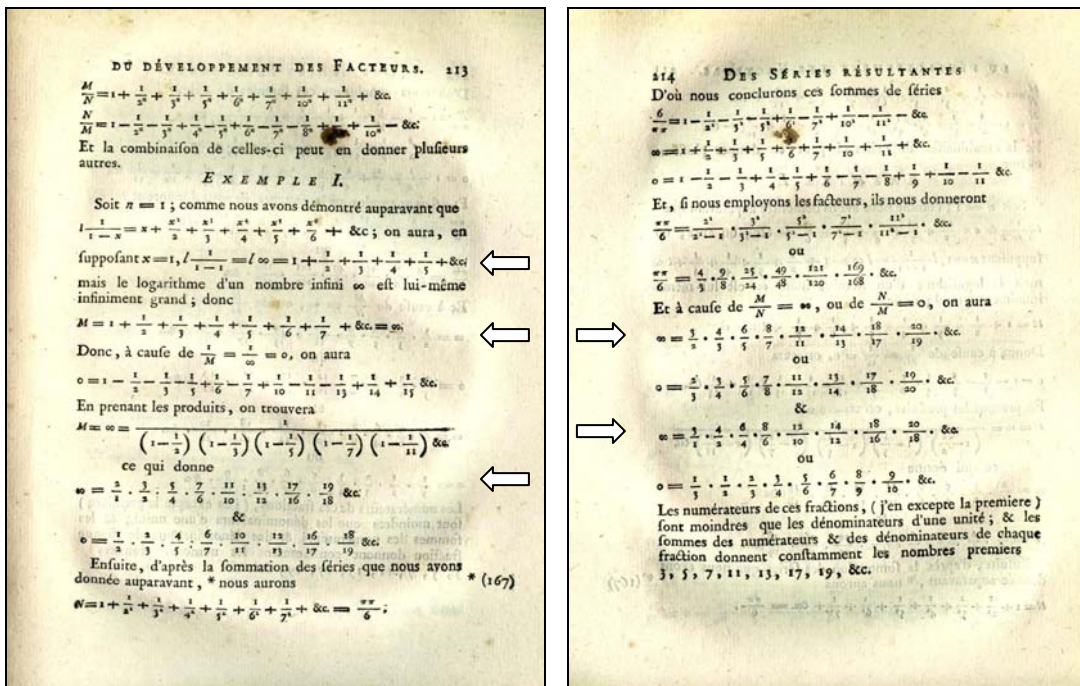 DU DÉVELOPPEMENT DES FACTEURS. 213
M/N = 1 + 1/2² + 1/3² + 1/5² + 1/6² + 1/7² + 1/10² + 1/11² + &c.
N/M = 1 − 1/2² − 1/3² − 1/5² + 1/6² − 1/7² − 1/8² + 1/10² − &c.
Et la combinaiſon de celles-ci peut en donner pluſieurs
autres.
EXEMPLE I.
Soit n = 1 ; comme nous avons démontré auparavant que
l 1/(1 − x) = x + x²/2 + x³/3 + x⁴/4 + x⁵/5 + x⁶/6 + &c ; on aura, en
ſuppoſant x = 1, l 1/(1 − 1) = l ∞ = 1 + 1/2 + 1/3 + 1/4 + 1/5 + &c;
mais le logarithme d'un nombre infini ∞ eſt lui-même
infiniment grand ; donc
M = 1 + 1/2 + 1/3 + 1/4 + 1/5 + 1/6 + 1/7 + &c. = ∞.
Donc, à cauſe de 1/M = 1/∞ = 0, on aura
0 = 1 − 1/2 − 1/3 − 1/5 + 1/6 − 1/7 + 1/10 − 1/11 − 1/13 + 1/14 + 1/15 &c.
En prenant les produits, on trouvera
M = ∞ = 1/((1 − 1/2) (1 − 1/3) (1 − 1/5) (1 − 1/7) (1 − 1/11) &c.
ce qui donne
∞ = 2/1 . 3/2 . 5/4 . 7/6 . 11/10 . 13/12 . 17/16 . 19/18 &c.
&
0 = 1/2 . 2/3 . 4/5 . 6/7 . 10/11 . 12/13 . 16/17 . 18/19 &c.
Enſuite, d'après la ſommation des ſéries que nous avons
donnée auparavant, * nous aurons * (167)
N = 1 + 1/2² + 1/3² + 1/4² + 1/5² + 1/6² + 1/7² + &c. = ππ/6 ;
214 DES SÉRIES RÉSULTANTES
D'où nous conclurons ces ſommes de ſéries
6/ππ = 1 − 1/2² − 1/3² − 1/5² + 1/6² − 1/7² + 1/10² − 1/11² − &c.
∞ = 1 + 1/2 + 1/3 + 1/5 + 1/6 + 1/7 + 1/10 + 1/11 + &c.
0 = 1 − 1/2 − 1/3 + 1/4 − 1/5 + 1/6 − 1/7 − 1/8 + 1/9 + 1/10 − 1/11 &c.
Et, ſi nous employons les facteurs, ils nous donneront
ππ/6 = 2²/(2² − 1) . 3²/(3² − 1) . 5²/(5² − 1) . 7²/(7² − 1) . 11²/(11² − 1) . &c.
ou
ππ/6 = 4/3 . 9/8 . 25/24 . 49/48 . 121/120 . 169/168 . &c.
Et à cauſe de M/N = ∞, ou de N/M = 0, on aura
∞ = 3/2 . 4/3 . 6/5 . 8/7 . 12/11 . 14/13 . 18/17 . 20/19 . &c.
ou
0 = 2/3 . 3/4 . 5/6 . 7/8 . 11/12 . 13/14 . 17/18 . 19/20 . &c.
&
∞ = 3/1 . 4/2 . 6/4 . 8/6 . 12/10 . 14/12 . 18/16 . 20/18 . &c.
ou
0 = 1/3 . 1/2 . 2/3 . 3/4 . 5/6 . 6/7 . 8/9 . 9/10 . &c.
Les numérateurs de ces fractions, ( j'en excepte la premiere )
ſont moindres que les dénominateurs d'une unité ; & les
ſommes des numérateurs & des dénominateurs de chaque
fraction donnent conſtamment les nombres premiers
3, 5, 7, 11, 13, 17, 19, &c.